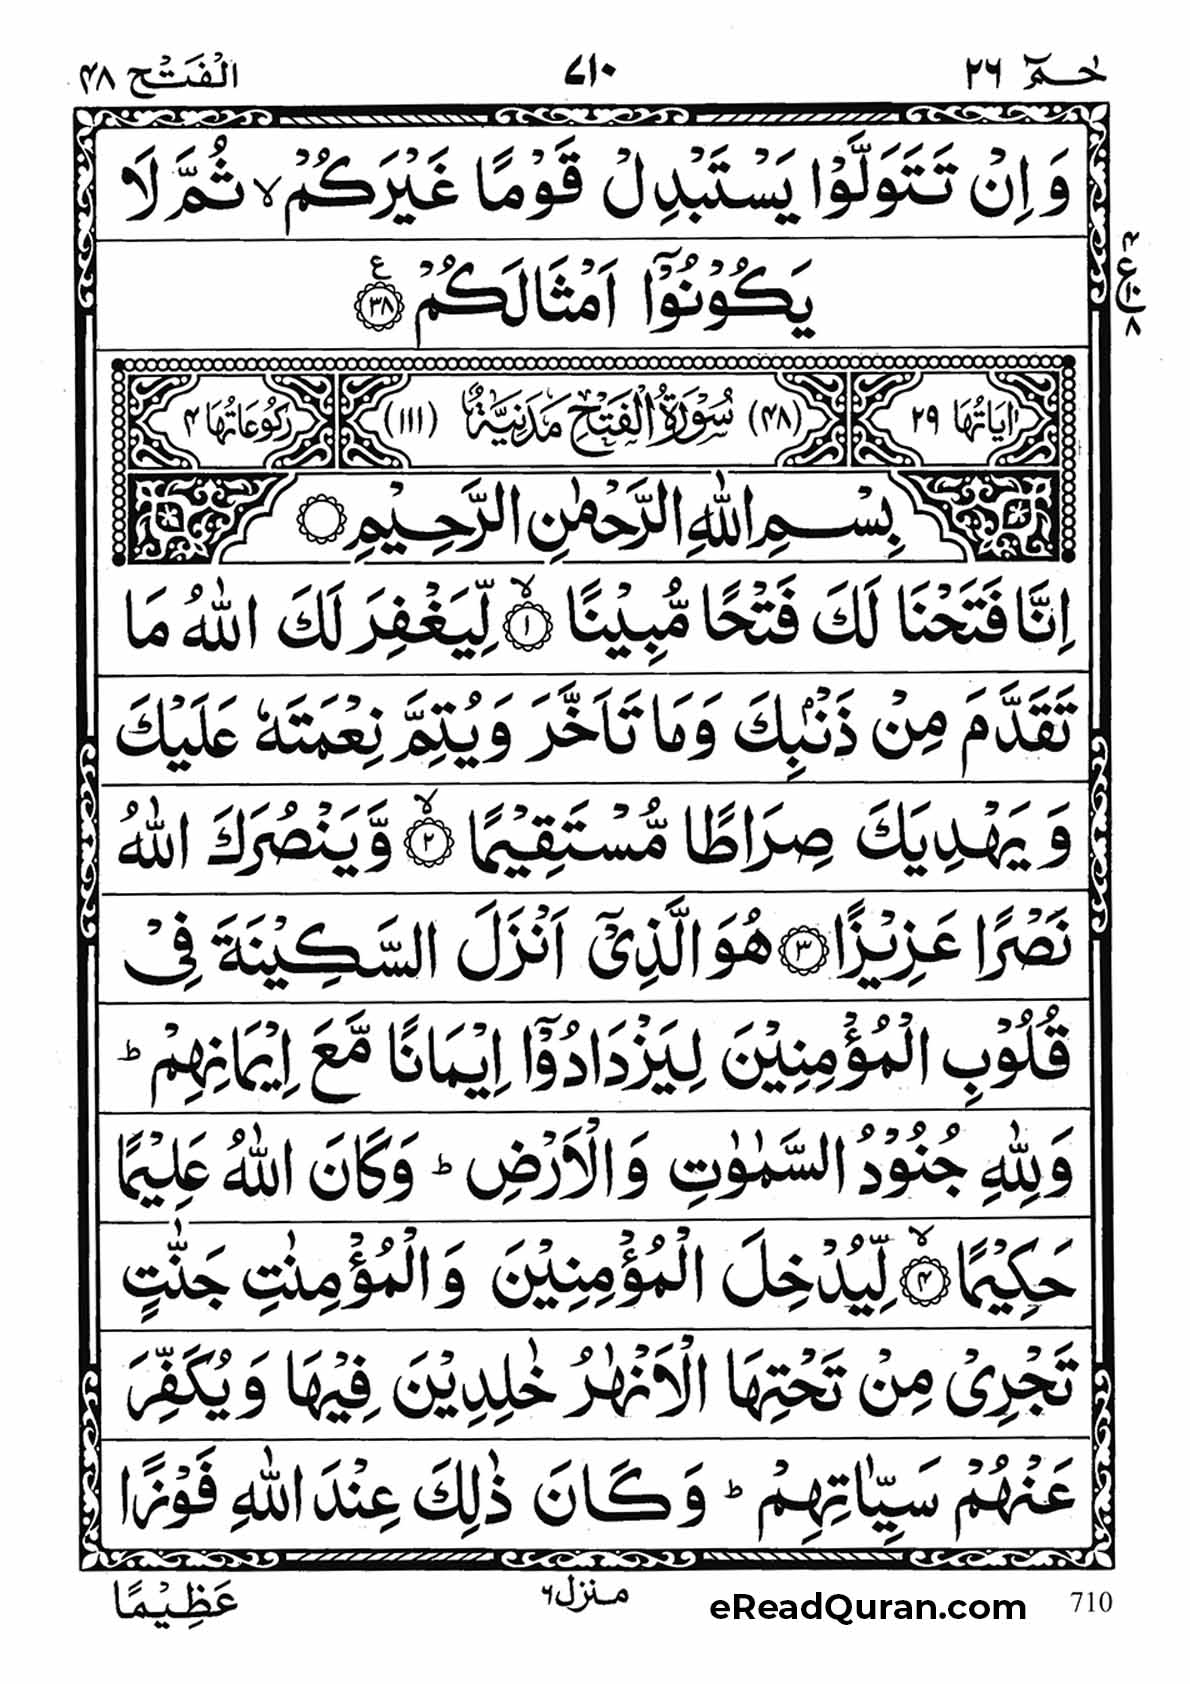 حٰمٓ ٢٦
٧١٠
الْفَتْح ٤٨
وَ اِنْ تَتَوَلَّوْا يَسْتَبْدِلْ قَوْمًا غَيْرَكُمْ ۙ ثُمَّ لَا
يَكُوْنُوْۤا اَمْثَالَكُمْ ٣٨ ع
ع
١٠
٨
اٰيَاتُهَا ٢٩
(٤٨) سُوْرَةُ الْفَتْحِ مَدَنِيَّةٌ (١١١)
رُكُوْعَاتُهَا ٤
بِسْمِ اللّٰهِ الرَّحْمٰنِ الرَّحِيْمِ
اِنَّا فَتَحْنَا لَكَ فَتْحًا مُّبِيْنًا ۙ ١ لِّيَغْفِرَ لَكَ اللّٰهُ مَا
تَقَدَّمَ مِنْ ذَنْۢبِكَ وَ مَا تَاَخَّرَ وَ يُتِمَّ نِعْمَتَهٗ عَلَيْكَ
وَ يَهْدِيَكَ صِرَاطًا مُّسْتَقِيْمًا ۙ ٢ وَّ يَنْصُرَكَ اللّٰهُ
نَصْرًا عَزِيْزًا ٣ هُوَ الَّذِيْۤ اَنْزَلَ السَّكِيْنَةَ فِيْ
قُلُوْبِ الْمُؤْمِنِيْنَ لِيَزْدَادُوْۤا اِيْمَانًا مَّعَ اِيْمَانِهِمْ ؕ
وَ لِلّٰهِ جُنُوْدُ السَّمٰوٰتِ وَ الْاَرْضِ ؕ وَ كَانَ اللّٰهُ عَلِيْمًا
حَكِيْمًا ۙ ٤ لِّيُدْخِلَ الْمُؤْمِنِيْنَ وَ الْمُؤْمِنٰتِ جَنّٰتٍ
تَجْرِيْ مِنْ تَحْتِهَا الْاَنْهٰرُ خٰلِدِيْنَ فِيْهَا وَ يُكَفِّرَ
عَنْهُمْ سَيِّاٰتِهِمْ ؕ وَ كَانَ ذٰلِكَ عِنْدَ اللّٰهِ فَوْزًا
عَظِيْمًا
منزل ٦
eReadQuran.com
710